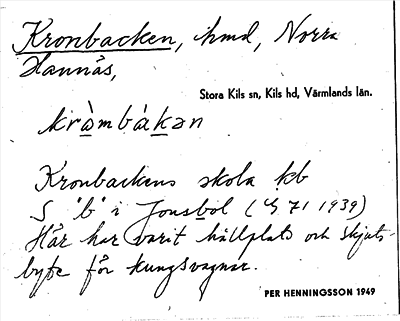 Kronbacken, hmd, Norra
Hannås,
Stora Kils sn, Kils hd, Värmlands län.
kràmbàkən
Kronbackens skola kb
S "b" i Jonsbol (Ꞔ 71 1939)
Här har varit hållplats och skjuts-
byte för kungsvagnar.
PER HENNINGSSON 1949